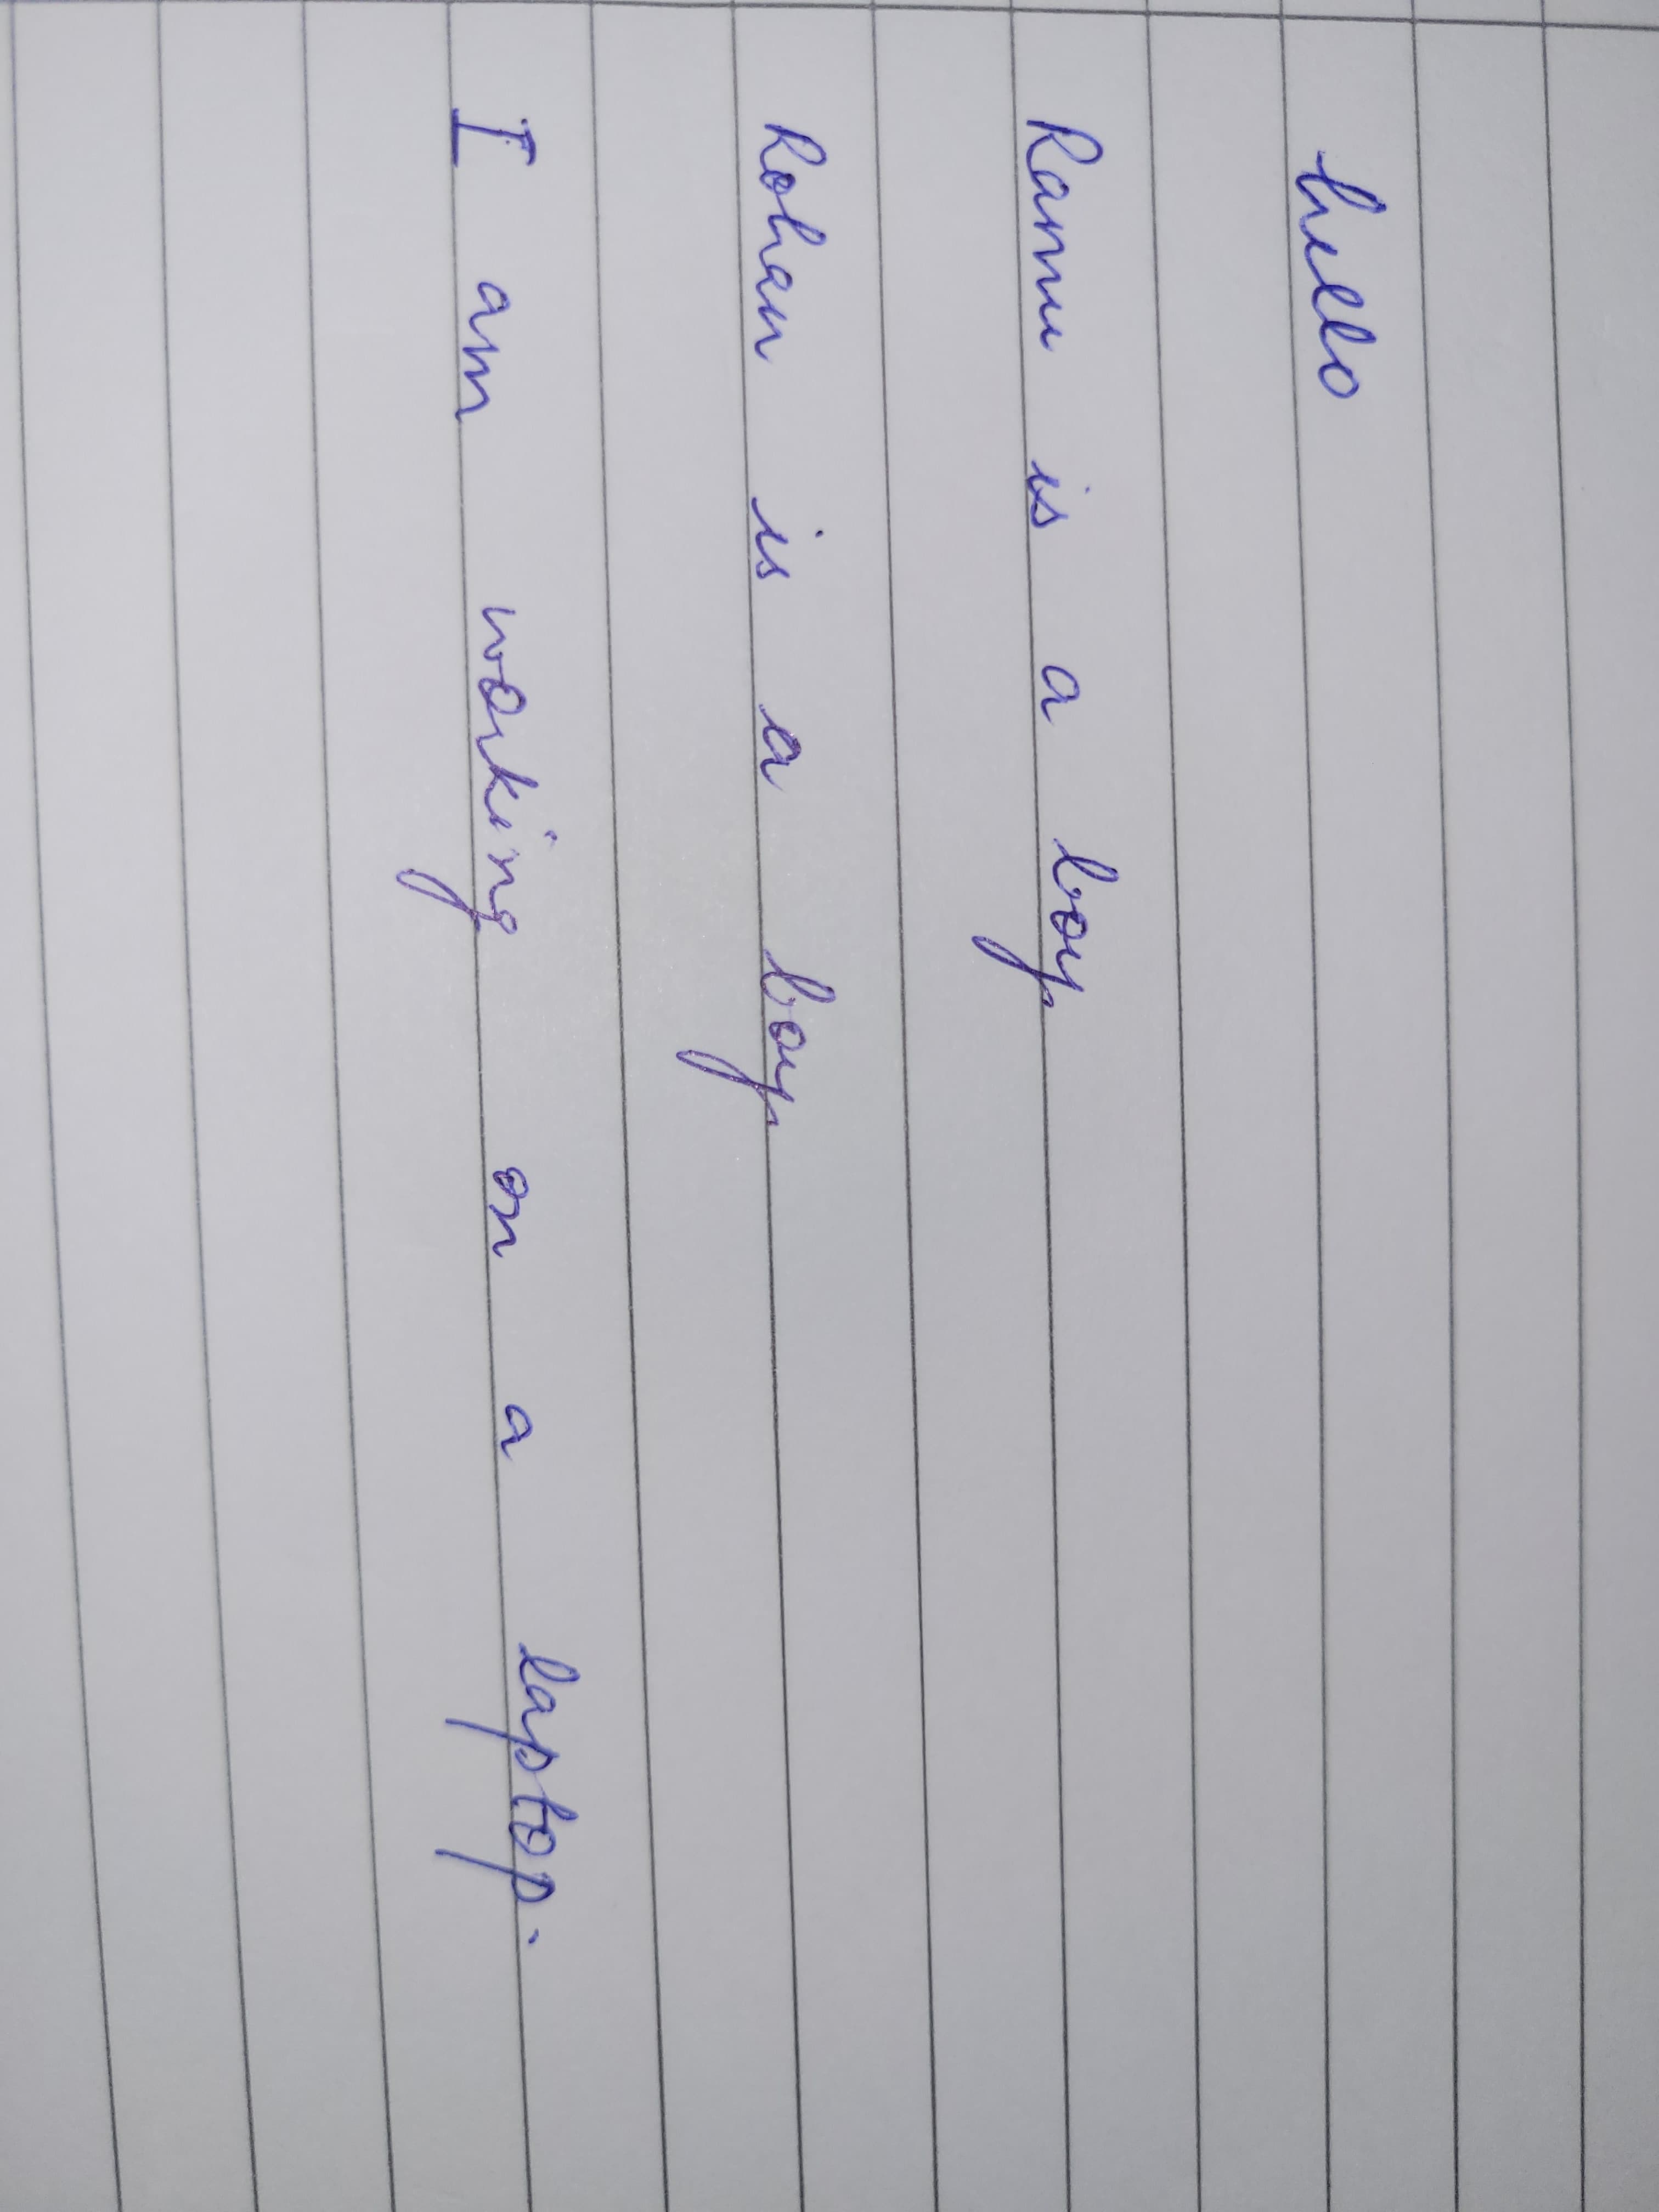 hello
Ramu is a boy.
Rohan is a boy.
I am working on a laptop.